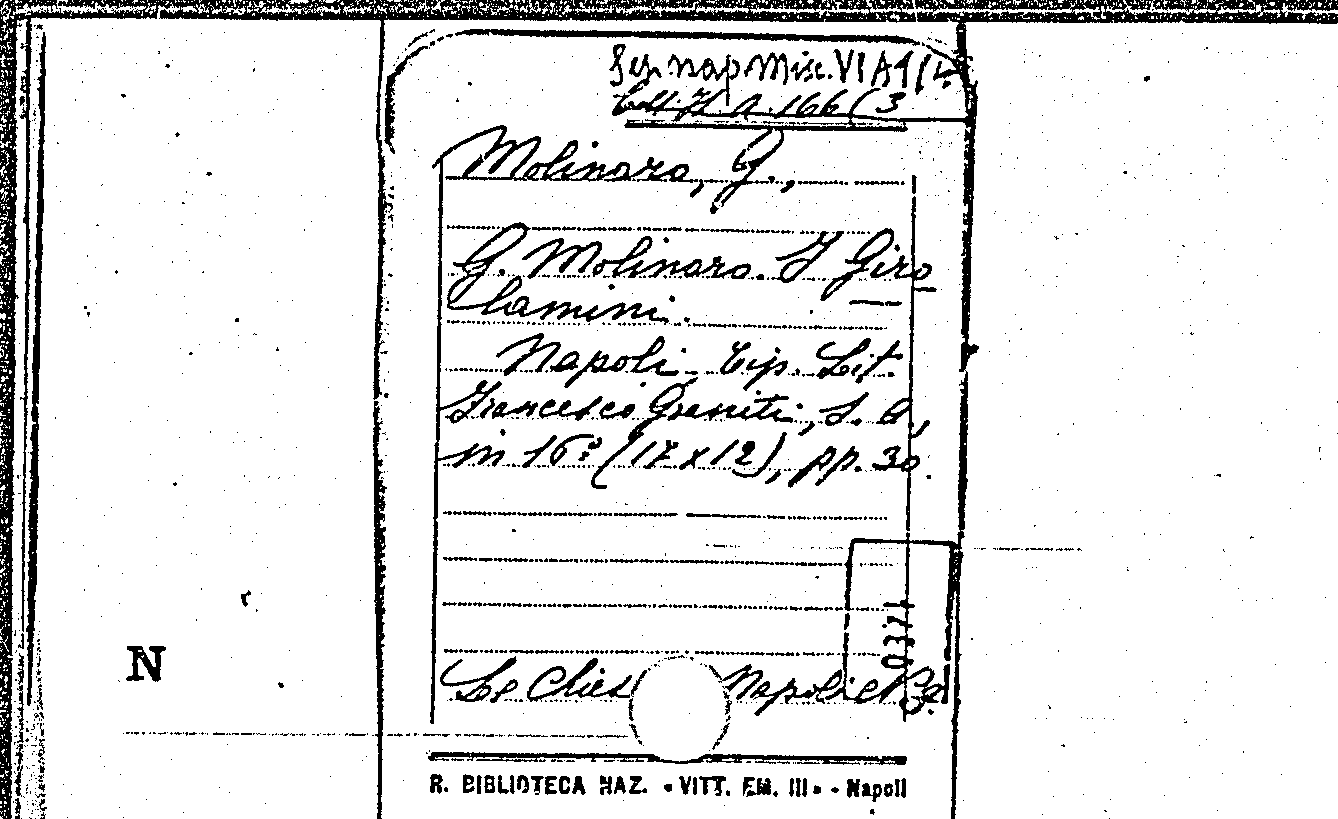 Sez. nap Misc. VI A 4/4.
Coll. A. 166 (3
Molinaro, G.,
G. Molinaro. I Giro
lamini.
Napoli. Tip. Lit.
Francesco Graniti, s. a.,
in 16º (17 x 12), pp. 30.
0371
N
Le Chies Napoli
R. BIBLIOTECA NAZ. « VITT. EM. III » - Napoli